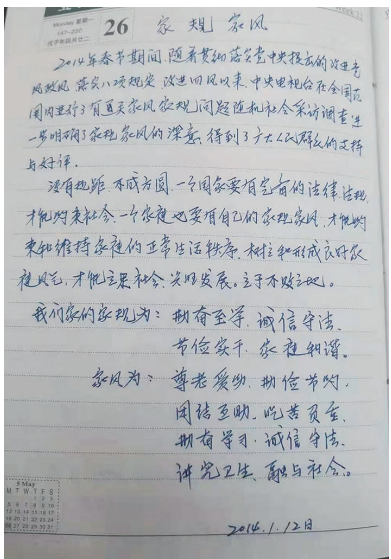 Monday 星期一
147-220
26
家规 家风
2014年春节期间,随着贯彻落实党中央提出的改进党
风政风,落实八项规定,改进四风以来,中央电视台在全国范
围内进行了有关家风家规问题随机社会采访调查,进一
步明确了家规家风的深意,得到了广大人民群众的支持
与好评。
没有规距,不成方圆,一个国家要有完备的法律法规,
才能约束社会,一个家庭也要有自己的家规家风,才能约
束和维持家庭的正常生活秩序,树立和形成良好家
庭风气,才能立果社会,发展。立于不败之地。
我们家的家规为:勤奋至学,诚信守法,
节俭实干,家庭和谐。
家风为:尊老爱幼,勤俭节约,
团结互助,吃苦负重,
勤奋学习,诚信守法,
讲究卫生,融与社会。
2014.1.12日
5 May
M T W T F S